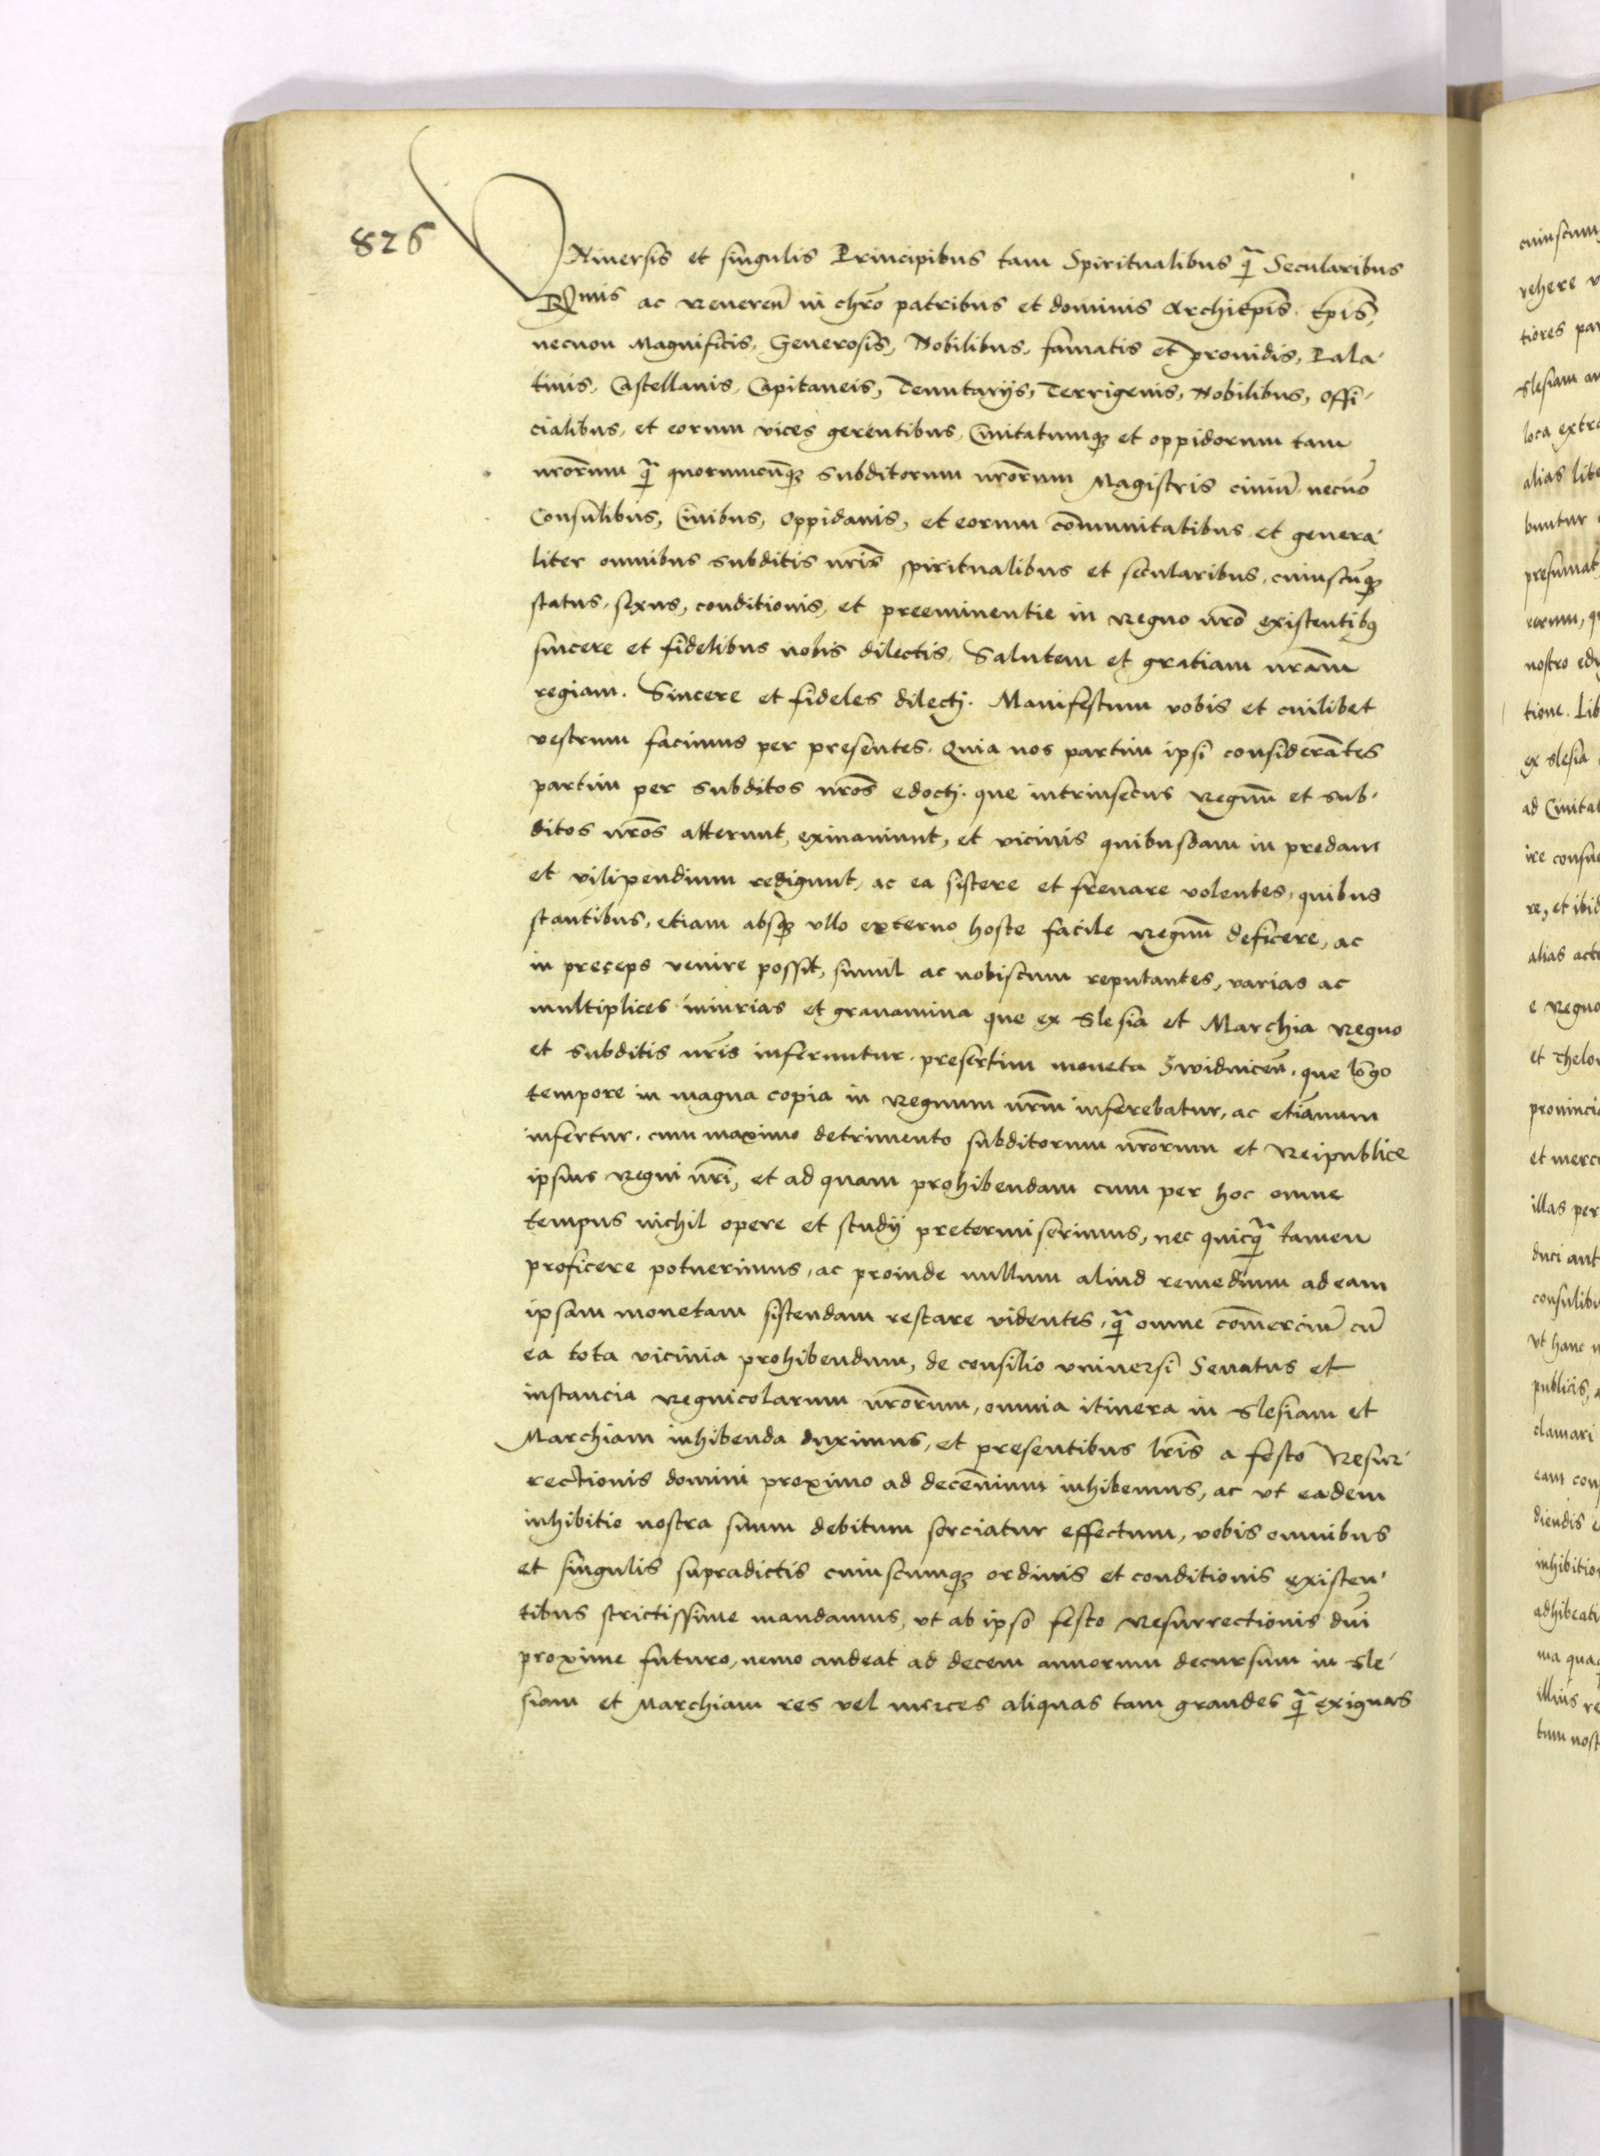 826
Vniuersis et singulis Principibus tam Spiritualibus q̃ Secularibus
Rmis ac Reueren̄ in chr̄o patribus et dominis Archiep̄is, Ep̄is,
necnon Magnificis, Generosis, Nobilibus, famatis et prouidis, Pala-
tinis, Castellanis, Capitaneis, Tenutarijs, Terrigenis, Nobilibus, Offi-
cialibus, et eorum vices gerentibus, Ciuitatumq; et oppidorum tam
nr̄orum q̃ quorumcunq; subditorum nr̄orum Magistris ciuiū necnō
Consulibus, Ciuibus, Oppidanis, et eorum com̄unitatibus et genera-
liter omnibus subditis nr̄is spiritualibus et secularibus, cuiuscūq;
status, sexus, conditionis, et preeminentie in Regno nr̄o existentibꝰ
sincere et fidelibus nobis dilectis, Salutem et gratiam nr̄am
regiam. Sincere et fideles dilectj. Manifestum vobis et cuilibet
vestrum facimus per presentes. Quia nos partim ipsi considerātes
partim per subditos nr̄os edoctj. que intrinsecus Regnū et sub-
ditos nr̄os atterunt, exinaniunt, et vicinis quibusdam in predam
et vilipendium redigunt, ac ea sistere et frenare volentes, quibus
stantibus, etiam absq; vllo externo hoste facile Regnū deficere, ac
in preceps venire possit, simul ac nobiscum reputantes, varias ac
multiplices iniurias et grauamina que ex Slesia et Marchia Regno
et subditis nr̄is inferuntur. presertim moneta Swidnicen̄. que lōgo
tempore in magna copia in Regnum nr̄m inferebatur, ac etiānum
infertur. cum maximo detrimento subditorum nr̄orum et Reipublice
ipsius Regni nr̄i, et ad quam prohibendam cum per hoc omne
tempus nichil opere et studij pretermiserimus, nec quicq̃ tamen
proficere potuerimus, ac proinde nullum aliud remedium ad eam
ipsam monetam sistendam restare videntes, q̃ omne com̄erciū cū
ea tota vicinia prohibendum, de consilio vniuersi Senatus et
instancia Regnicolarum nr̄orum, omnia itinera in Slesiam et
Marchiam inhibenda duximus, et presentibus lr̄is a festo Resur-
rectionis domini proximo ad decenniū inhibemus, ac vt eadem
inhibitio nostra suum debitum sorciatur effectum, vobis omnibus
et singulis supradictis cuiuscumq; ordinis et conditionis existen-
tibus strictissime mandamus, vt ab ipso festo Resurrectionis dn̄i
proxime futuro, nemo audeat ad decem annorum decursum in Sle-
siam et Marchiam res vel merces aliquas tam grandes q̃ exiguas